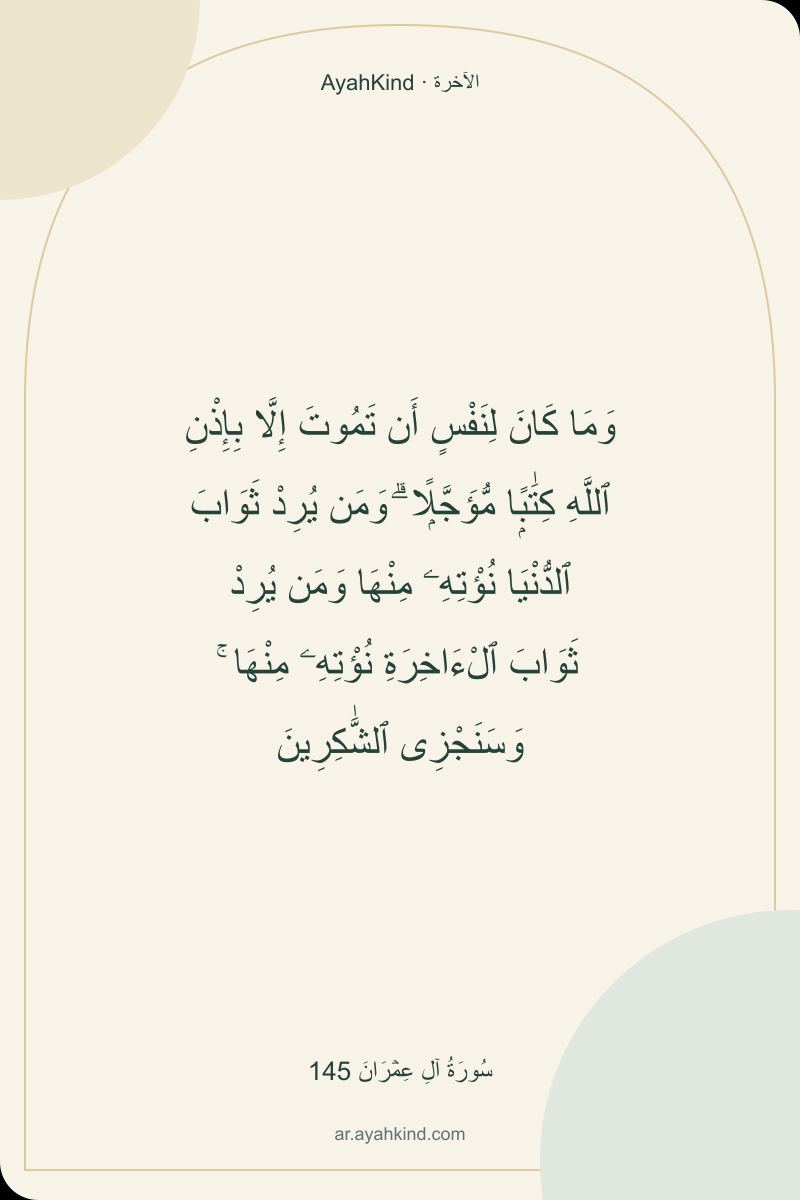 AyahKind · الآخرة
وَمَا كَانَ لِنَفْسٍ أَن تَمُوتَ إِلَّا بِإِذْنِ
ٱللَّهِ كِتَٰبًۭا مُّؤَجَّلًۭا ۗ وَمَن يُرِدْ ثَوَابَ
ٱلدُّنْيَا نُؤْتِهِۦ مِنْهَا وَمَن يُرِدْ
ثَوَابَ ٱلْءَاخِرَةِ نُؤْتِهِۦ مِنْهَا ۚ
وَسَنَجْزِى ٱلشَّٰكِرِينَ
سُورَةُ آلِ عِمۡرَانَ 145
ar.ayahkind.com